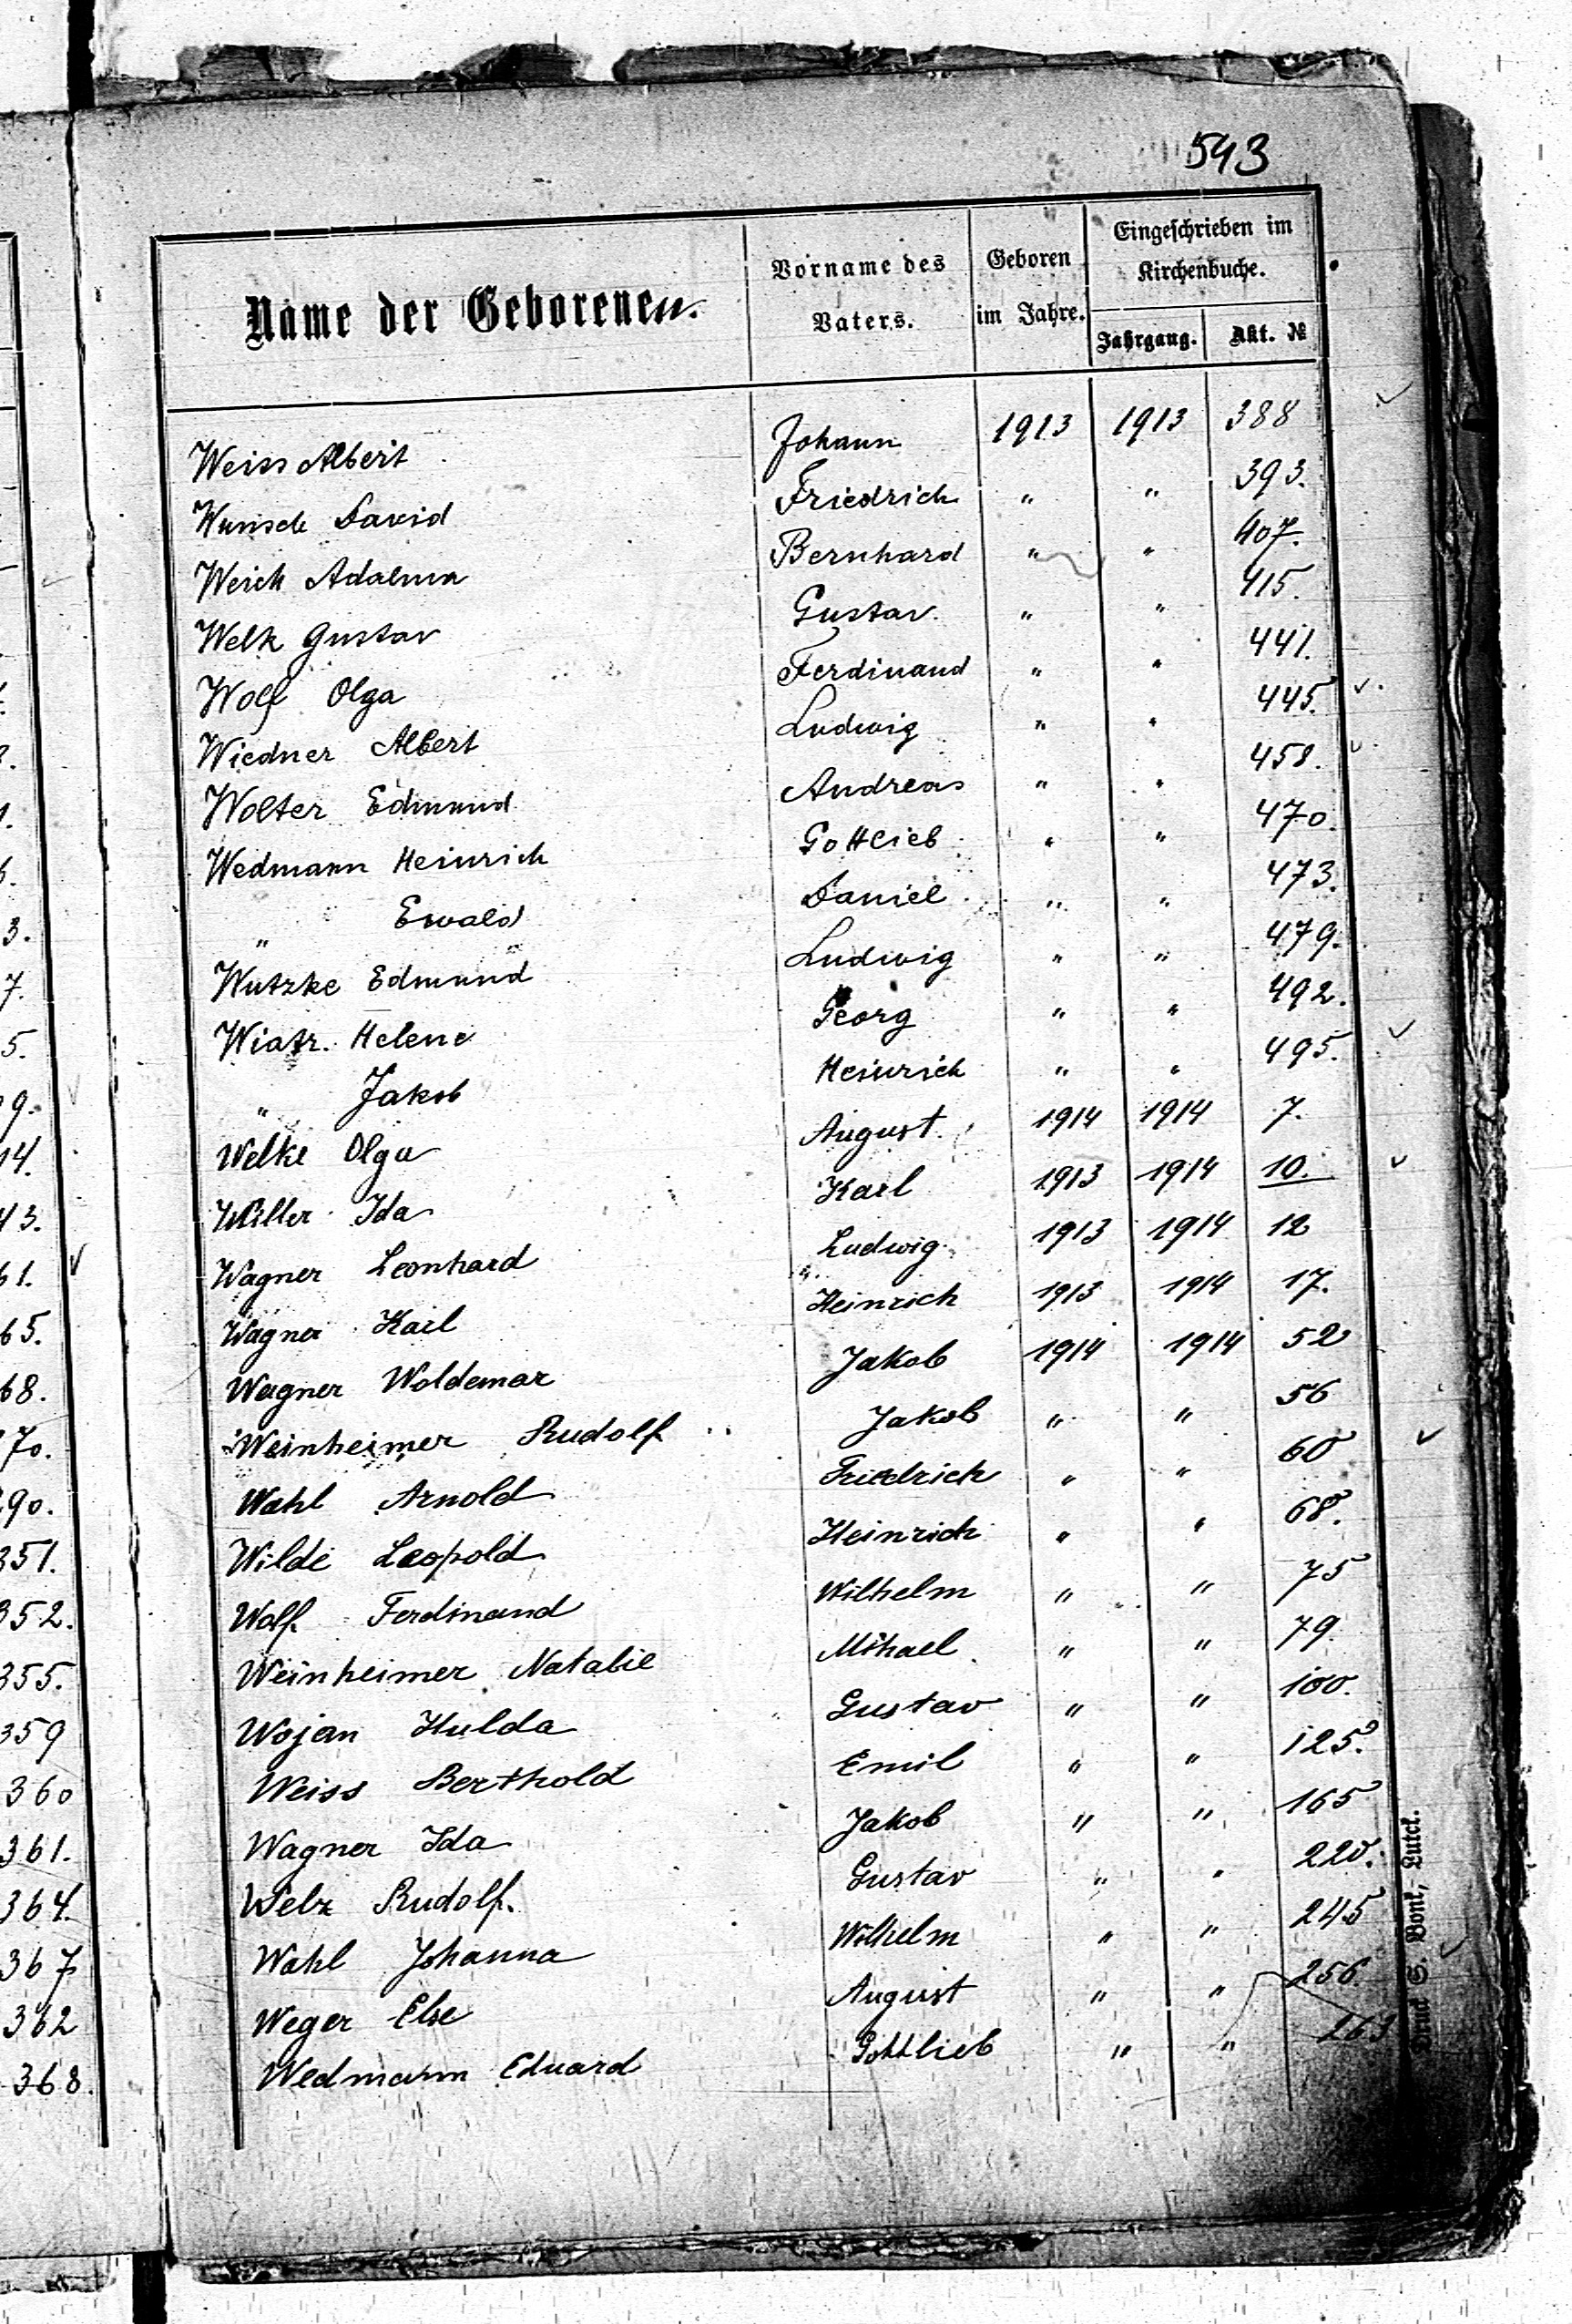 543
Name der Geborenen.
Vorname des Vaters.
Geboren im Jahre.
Eingeschrieben im Kirchenbuche.
Jahrgang. Akt. №
Weiss Albert Johann 1913 1913 388
Wunsch David Friedrich " " 393.
Weich Adalina Bernhard " " 407.
Welk Gustav Gustav. " " 415.
Wolf Olga Ferdinand " " 441.
Wiedner Albert Ludwig " " 445.
Wolter Edmund Andreas " " 458.
Wedmann Heinrich Gottlieb " " 470.
" Ewald Daniel " " 473.
Wutzke Edmund Ludwig " " 479.
Wiatr. Helene Georg " " 492.
" Jakob Heinrich " " 495.
Welke Olga August 1914 1914 7.
Willer Ida Karl 1913 1914 10.
Wagner Leonhard Ludwig 1913 1914 12
Wagner Karl Heinrich 1913 1914 17.
Wagner Woldemar Jakob 1914 1914 52
Weinheimer Rudolf Jakob " " 56
Wahl Arnold Friedrich " " 60
Wilde Leopold Heinrich " " 68.
Wolf Ferdinand Wilhelm " " 75
Weinheimer Natalie Mihael " " 79.
Wojan Hulda Gustav " " 100.
Weiss Berthold Emil " " 125.
Wagner Ida Jakob " " 165
Welz Rudolf. Gustav " " 220.
Wahl Johanna Wilhelm " " 245
Weger Else August " " 256.
Wedmann Eduard Gottlieb " " 263
Druck S. Bonk, Lutzk.
3.
7.
5.
9.
14.
43.
61.
65.
68.
70.
290.
351.
352.
355.
359
360
361.
364.
367
362
368.